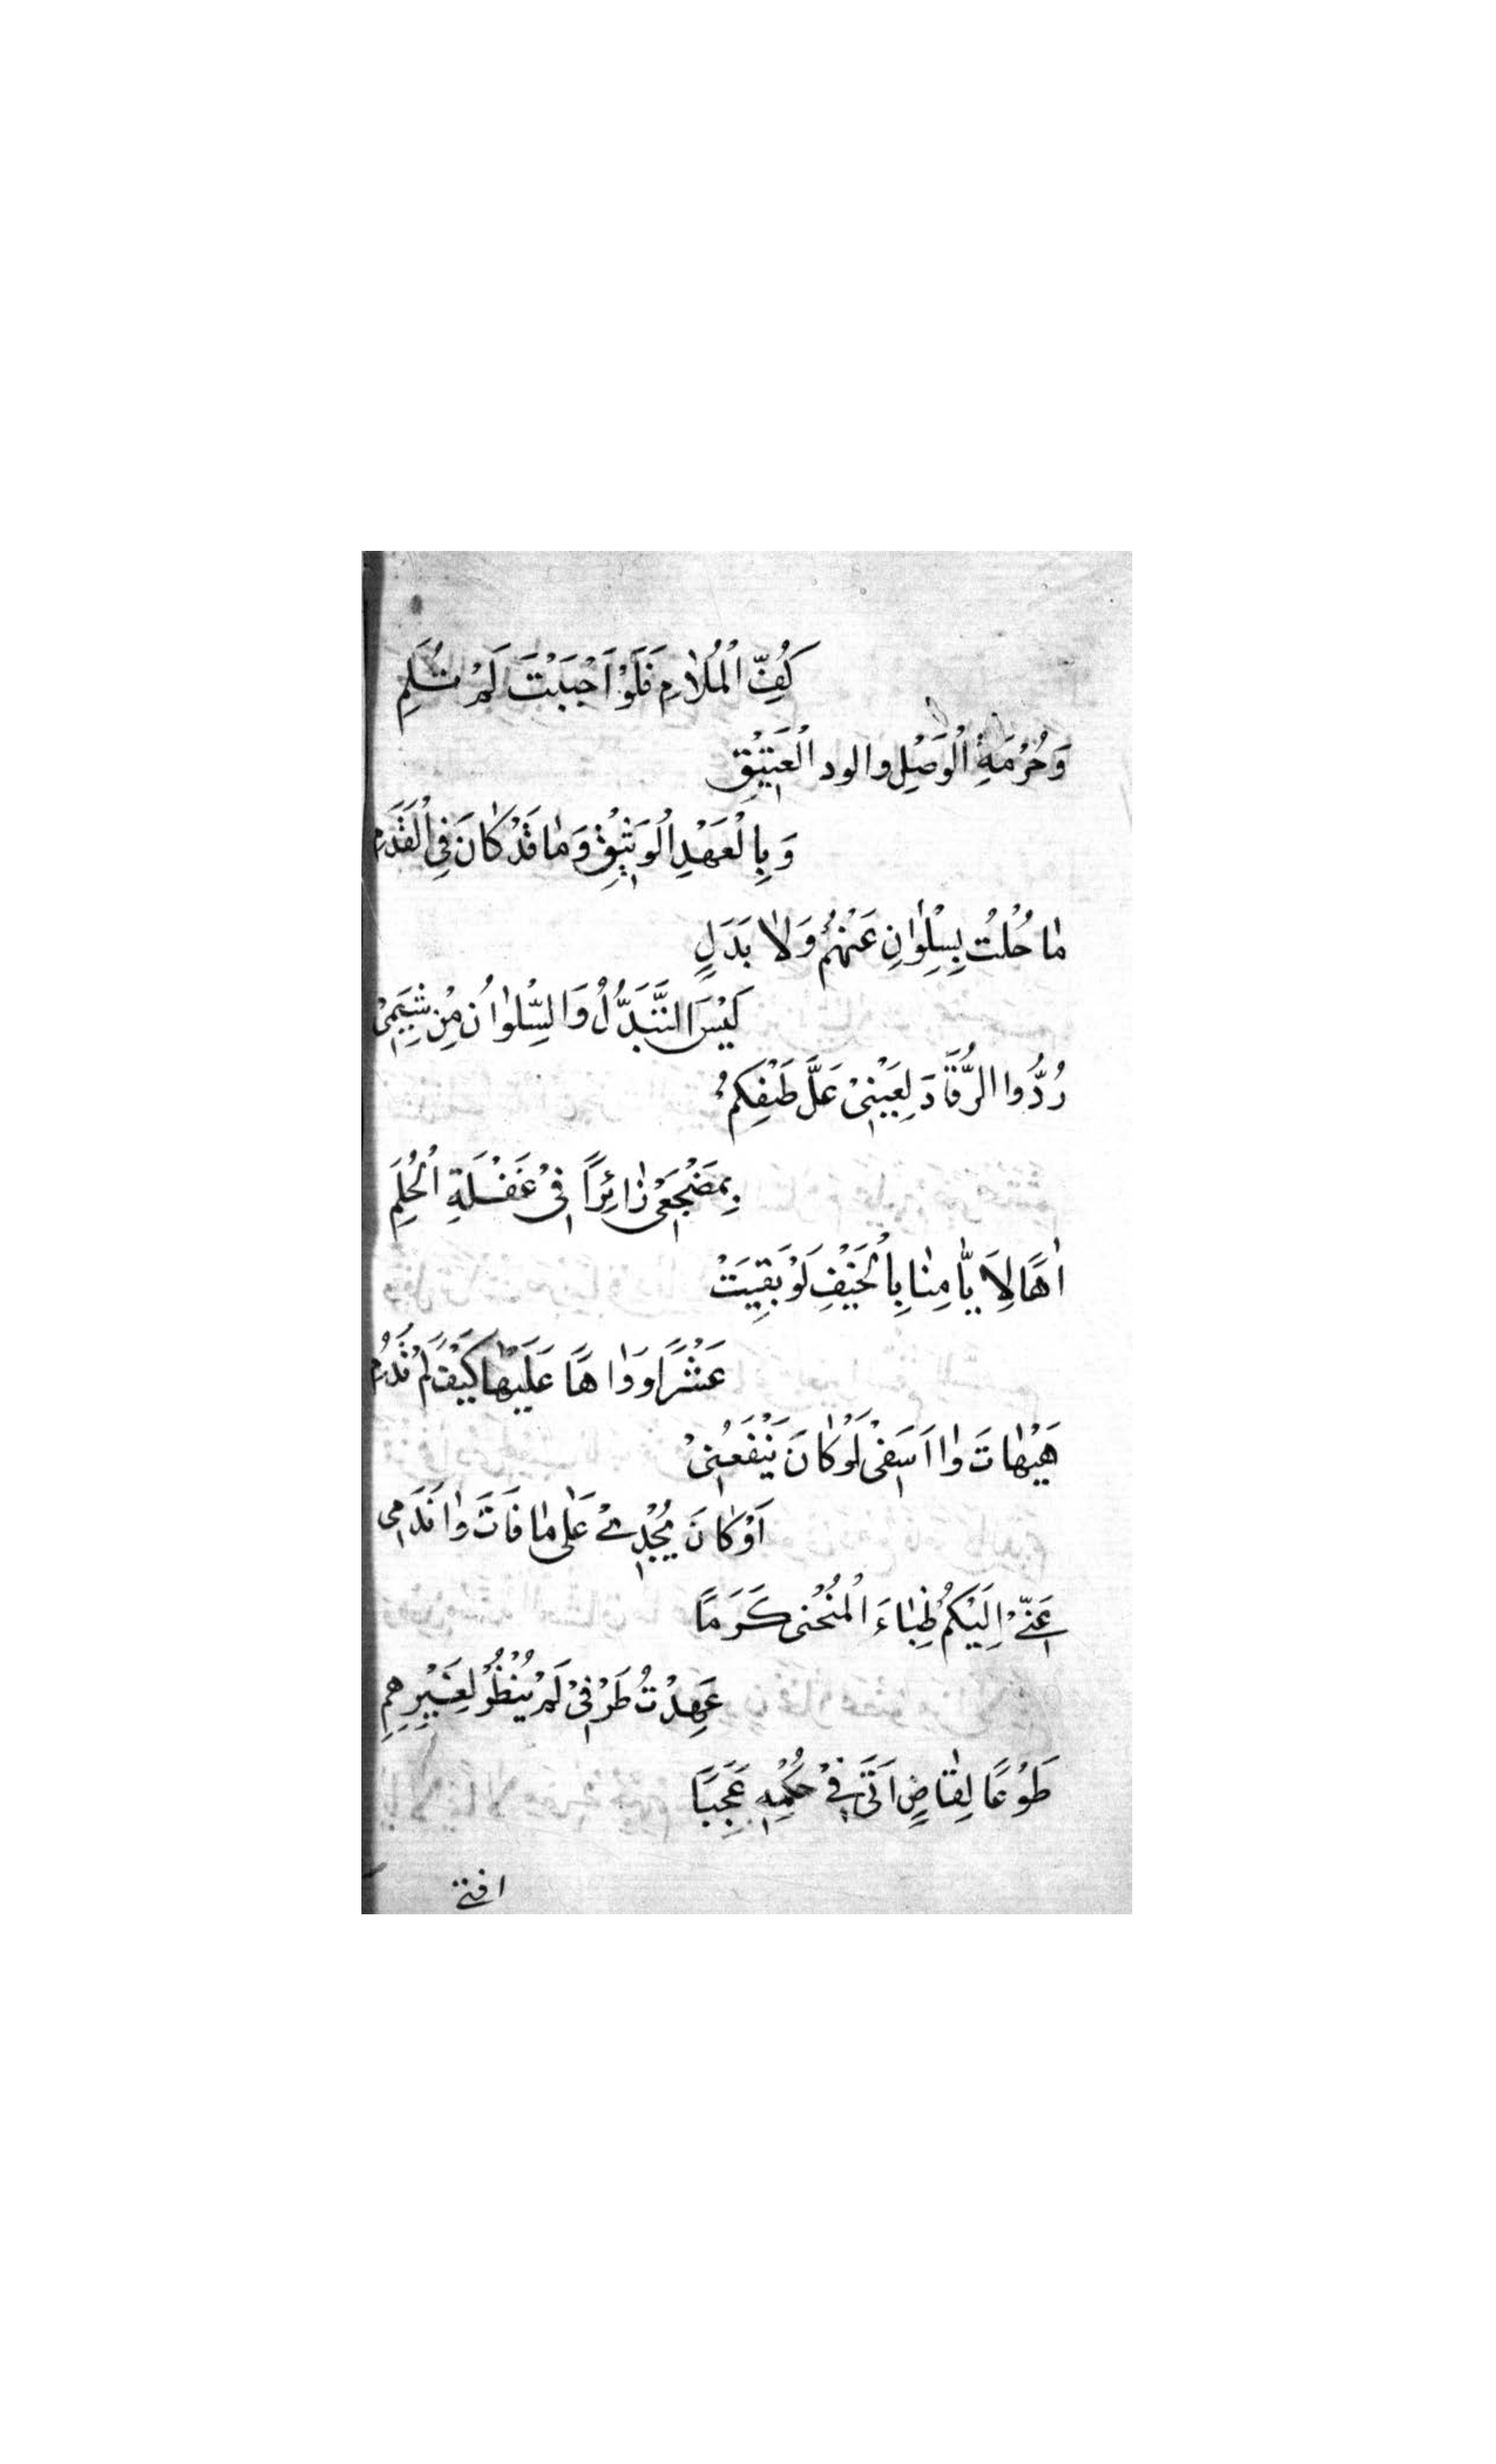 كُفِّ الْمُلَامِ فَلَوْ اَحْبَبْتَ لَمْ تَلُمِ
وَحُرْمَةِ الْوَصْلِ والود الْعَتِيْقِ
وَبِالْعَهْدِ الْوَثِيْقِ وَمَا قَدْ كَانَ فِى الْقَدَمِ
مَا حُلْتُ بِسِلْوَانِ عَنْهُمْ وَلَا بَدَلٍ
لَيْسَ التَّبَدُّلُ وَالسِّلْوَانُ مِنْ شِيَمِىْ
رُدُّوا الرُّقَادَ لِعَيْنِىْ عَلَّ طَيْفِكُمُ
بِمَضْجَعِىْ زَائِرًا فِىْ غَفْلَةِ الْحُلُمِ
اٰهًا لِاَيَّامِنَا بِالْخَيْفِ لَوْ بَقِيَتْ
عَشْرًا وَوَاهًا عَلَيْهَا كَيْفَ لَمْ تَدُمِ
هَيْهَاتَ وَا اَسَفِىْ لَوْ كَانَ يَنْفَعُنِىْ
اَوْ كَانَ يُجْدِىْ عَلٰى مَا فَاتَ وَا نَدَمِى
عَنِّىْ اِلَيْكُمْ ظِبَاءَ الْمُنْحَنٰى كَرَمًا
عَهِدْتُ طَرْفِىْ لَمْ يَنْظُرْ لِغَيْرِهِمِ
طَوْعًا لِقَاضٍ اَتٰى فِىْ حُكْمِهِ عَجَبًا
افتى